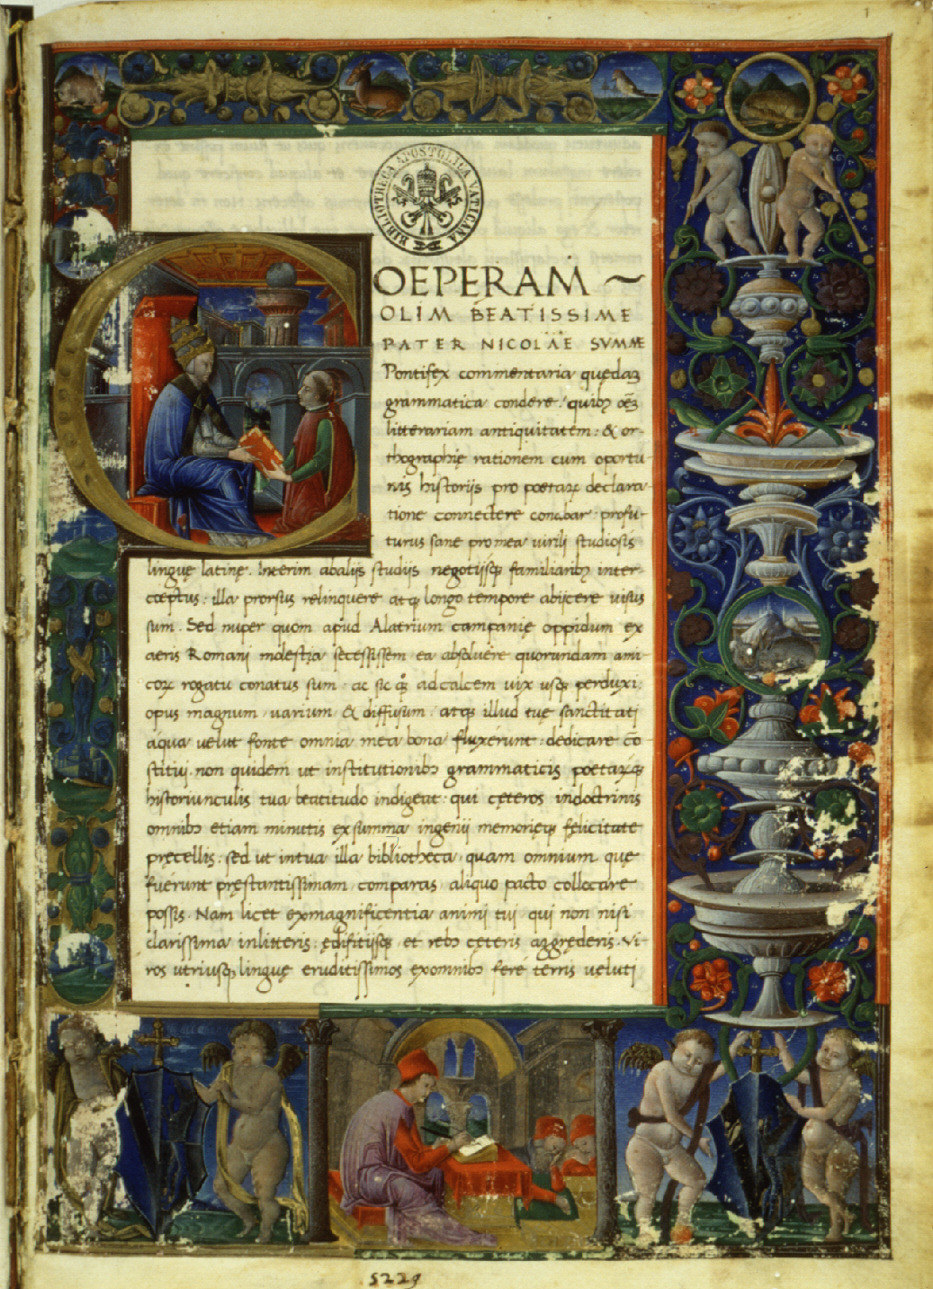 BIBLIOTHECA APOSTOLICA VATICANA
COEPERAM
OLIM BEATISSIME
PATER NICOLAE SVMME
Pontifex commentaria quędaꝫ
grammatica condere: quibꝫ oēꝫ
litterariam antiquitatem: & or-
thographię rationem cum oportu
nis historijs pro poetaꝝ declara
tione connectere conabar: profu-
turus sane pro mea virili studiosis
linguę latinę. Interim abalijs studijs negotijsqꝫ familiaribꝫ inter-
cęptus: illa prorsus relinquere atqꝫ longo tempore abijcere uisus
sum. Sed nuper quom apud Alatrium campanię oppidum ex
aeris Romani molestia secessissem ea absoluere quorundam ami
coꝝ rogatu conatus sum: ac sic adcalcem uix usqꝫ perduxi
opus magnum uarium & diffusum: atqꝫ illud tuę sanctitati
aqua uelut fonte omnia mea bona fluxerunt: dedicare cō
stitui. non quidem ut institutionibꝫ grammaticis poetaꝝqꝫ
historiunculis tua beatitudo indigeat: qui cęteros indoctrinis
omnibꝫ etiam minutis exsumma ingenij memorięqꝫ felicitate
pręcellis: sed ut intua illa bibliotheca quam omnium quę
fuerunt pręstantissimam comparas aliquo pacto collocare
possis. Nam licet exmagnificentia animi tui qui non nisi
clarissima inlitteris: ędifitijsqꝫ et rebꝫ cęteris aggrederis. Vi
ros utriusqꝫ linguę eruditissimos exomnibꝫ ferè terris ueluti
5229